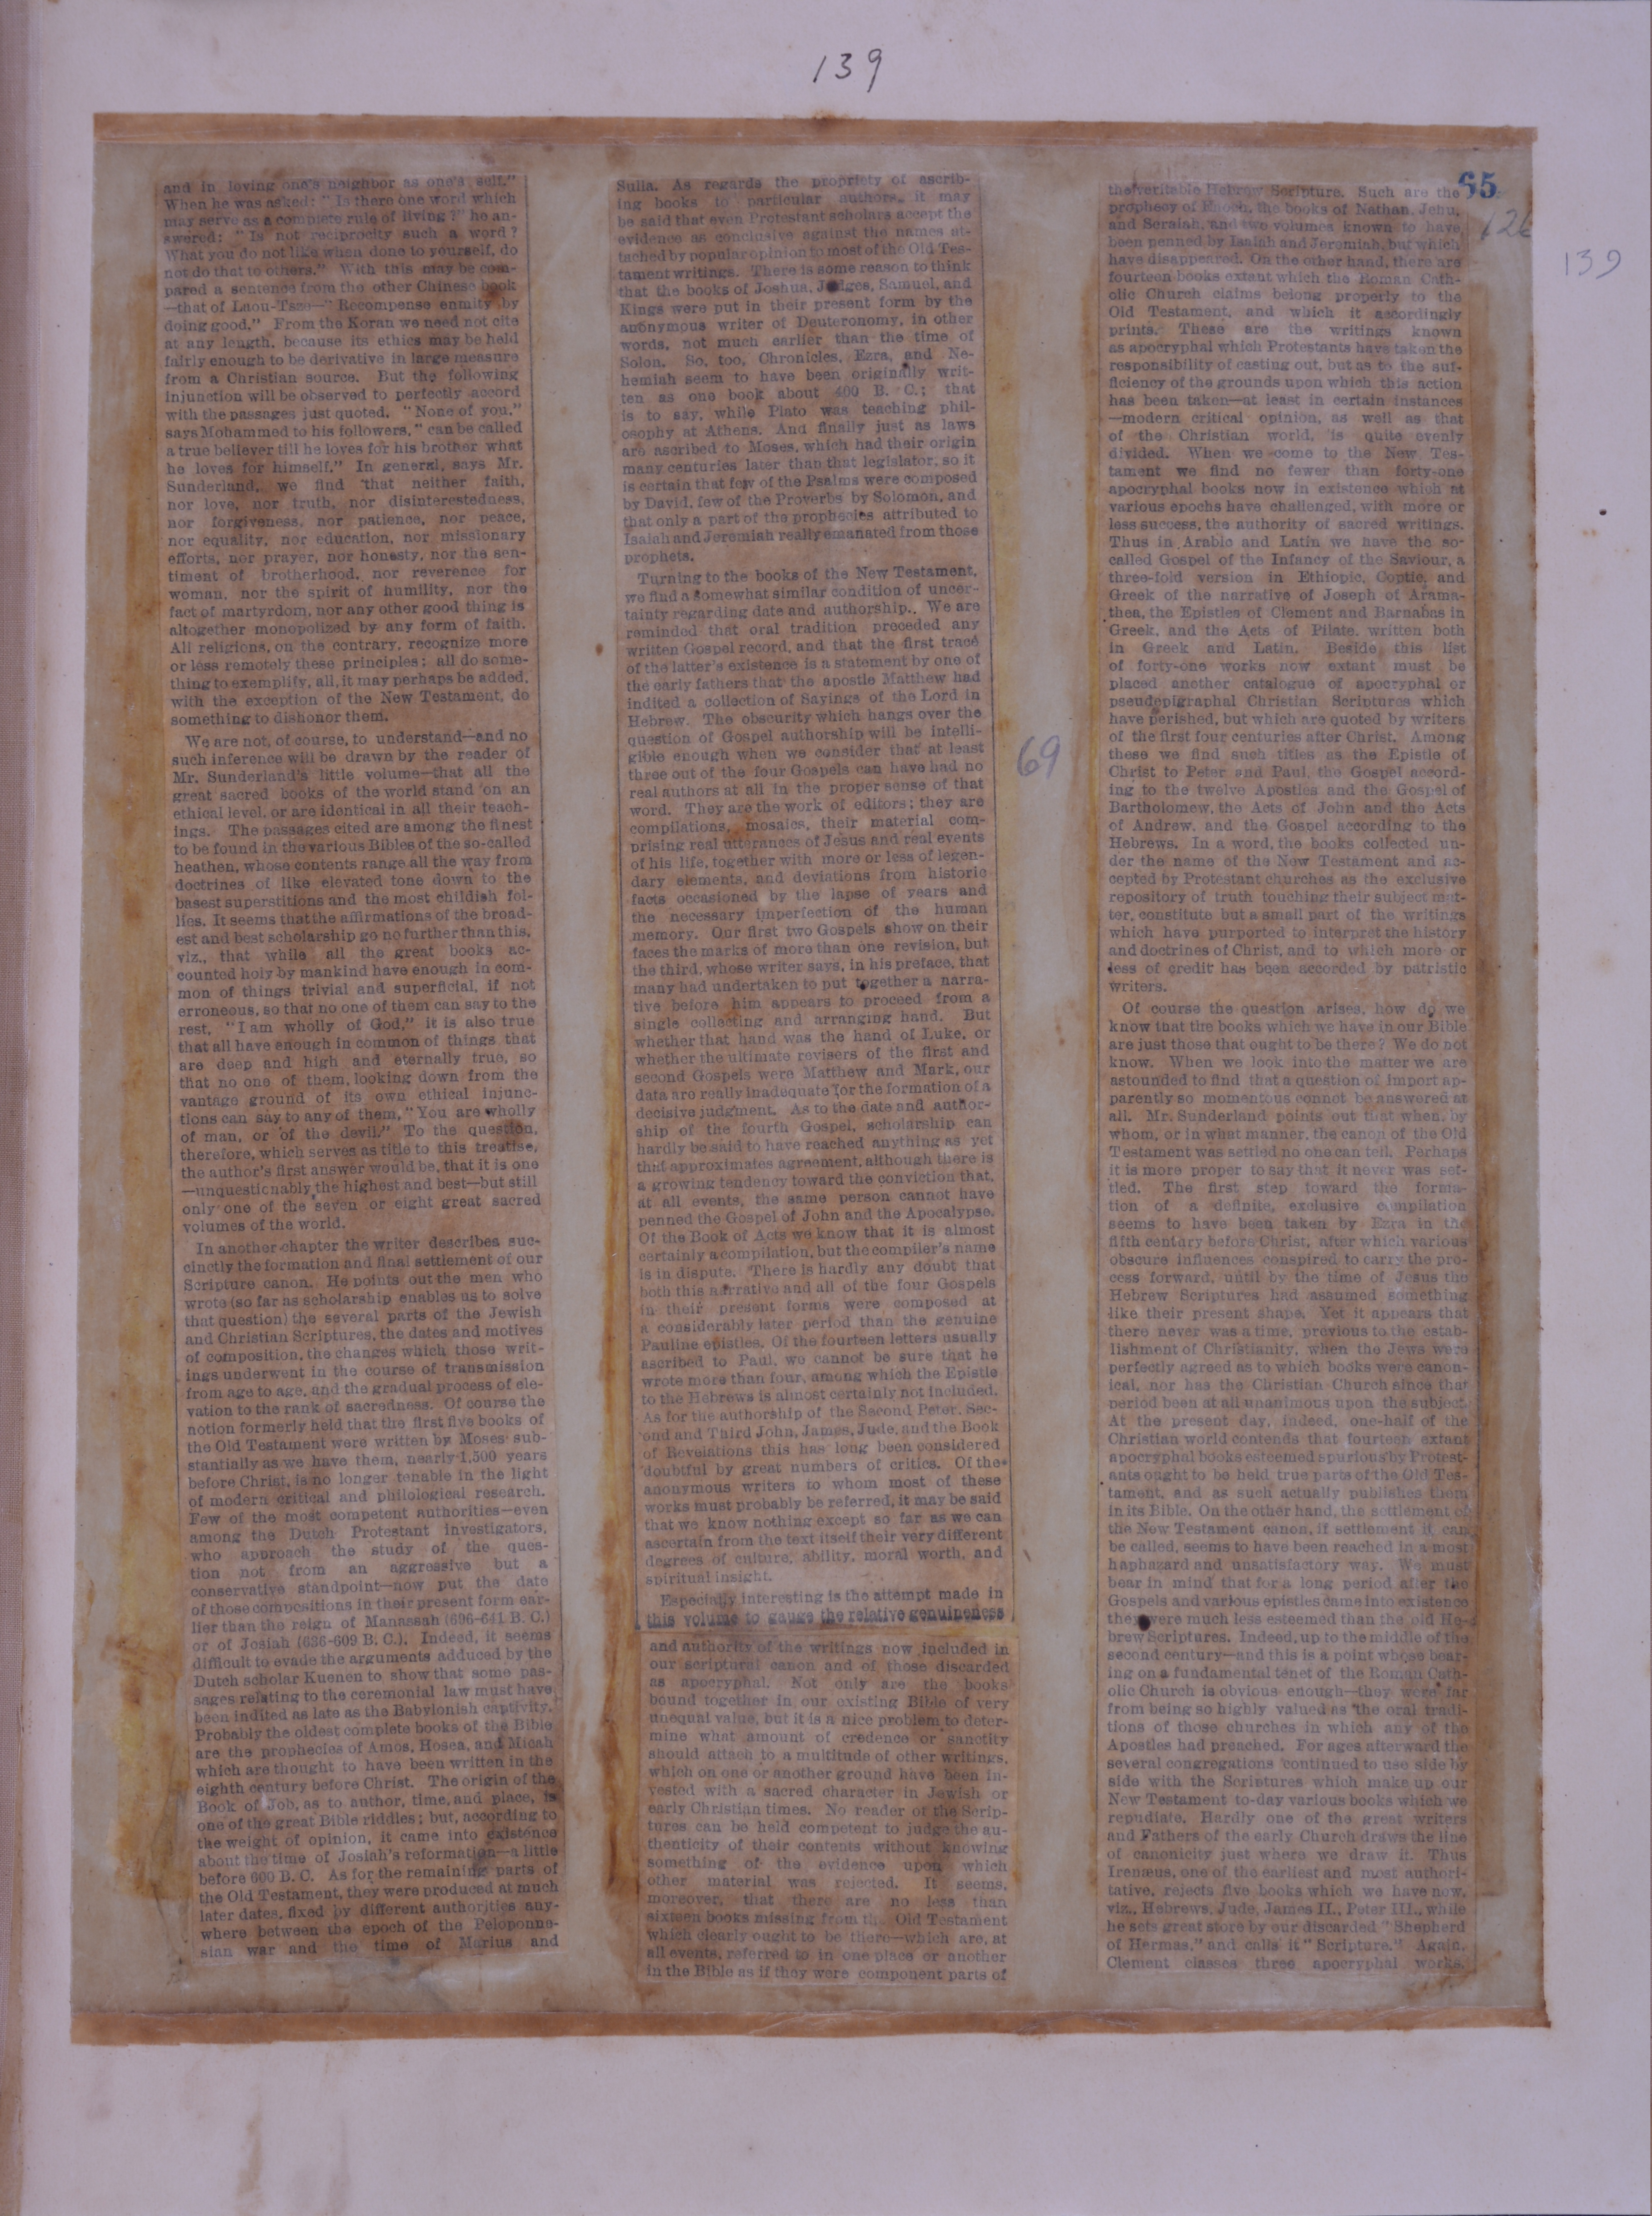 139
65
126
139
69
and in loving one's neighbor as one's self."
When he was asked: "Is there one word which
may serve as a complete rule of living?" he an-
swered: "Is not reciprocity such a word?
What you do not like when done to yourself, do
not do that to others." With this may be com-
pared a sentence from the other Chinese book
—that of Laou-Tsze—"Recompense enmity by
doing good." From the Koran we need not cite
at any length, because its ethics may be held
fairly enough to be derivative in large measure
from a Christian source. But the following
injunction will be observed to perfectly accord
with the passages just quoted. "None of you,"
says Mohammed to his followers, "can be called
a true believer till he loves for his brother what
he loves for himself." In general, says Mr.
Sunderland, we find that neither faith,
nor love, nor truth, nor disinterestedness,
nor forgiveness, nor patience, nor peace,
nor equality, nor education, nor missionary
efforts, nor prayer, nor honesty, nor the sen-
timent of brotherhood, nor reverence for
woman, nor the spirit of humility, nor the
fact of martyrdom, nor any other good thing is
altogether monopolized by any form of faith.
All religions, on the contrary, recognize more
or less remotely these principles; all do some-
thing to exemplify, all, it may perhaps be added,
with the exception of the New Testament, do
something to dishonor them.
We are not, of course, to understand—and no
such inference will be drawn by the reader of
Mr. Sunderland's little volume—that all the
great sacred books of the world stand on an
ethical level, or are identical in all their teach-
ings. The passages cited are among the finest
to be found in the various Bibles of the so-called
heathen, whose contents range all the way from
doctrines of like elevated tone down to the
basest superstitions and the most childish fol-
lies. It seems that the affirmations of the broad-
est and best scholarship go no further than this,
viz., that while all the great books ac-
counted holy by mankind have enough in com-
mon of things trivial and superficial, if not
erroneous, so that no one of them can say to the
rest, "I am wholly of God," it is also true
that all have enough in common of things that
are deep and high and eternally true, so
that no one of them, looking down from the
vantage ground of its own ethical injunc-
tions can say to any of them, "You are wholly
of man, or of the devil." To the question,
therefore, which serves as title to this treatise,
the author's first answer would be, that it is one
—unquestionably the highest and best—but still
only one of the seven or eight great sacred
volumes of the world.
In another chapter the writer describes suc-
cinctly the formation and final settlement of our
Scripture canon. He points out the men who
wrote (so far as scholarship enables us to solve
that question) the several parts of the Jewish
and Christian Scriptures, the dates and motives
of composition, the changes which those writ-
ings underwent in the course of transmission
from age to age, and the gradual process of ele-
vation to the rank of sacredness. Of course the
notion formerly held that the first five books of
the Old Testament were written by Moses sub-
stantially as we have them, nearly 1,500 years
before Christ, is no longer tenable in the light
of modern critical and philological research.
Few of the most competent authorities—even
among the Dutch Protestant investigators,
who approach the study of the ques-
tion not from an aggressive but a
conservative standpoint—now put the date
of those compositions in their present form ear-
lier than the reign of Manassah (696-641 B. C.)
or of Josiah (636-609 B. C.). Indeed, it seems
difficult to evade the arguments adduced by the
Dutch scholar Kuenen to show that some pas-
sages relating to the ceremonial law must have
been indited as late as the Babylonish captivity.
Probably the oldest complete books of the Bible
are the prophecies of Amos, Hosea, and Micah
which are thought to have been written in the
eighth century before Christ. The origin of the
Book of Job, as to author, time, and place, is
one of the great Bible riddles; but, according to
the weight of opinion, it came into existence
about the time of Josiah's reformation—a little
before 600 B. C. As for the remaining parts of
the Old Testament, they were produced at much
later dates, fixed by different authorities any-
where between the epoch of the Peloponne-
sian war and the time of Marius and
Sulla. As regards the propriety of ascrib-
ing books to particular authors, it may
be said that even Protestant scholars accept the
evidence as conclusive against the names at-
tached by popular opinion to most of the Old Tes-
tament writings. There is some reason to think
that the books of Joshua, Judges, Samuel, and
Kings were put in their present form by the
anonymous writer of Deuteronomy, in other
words, not much earlier than the time of
Solon. So, too, Chronicles, Ezra, and Ne-
hemiah seem to have been originally writ-
ten as one book about 400 B. C.; that
is to say, while Plato was teaching phil-
osophy at Athens. And finally just as laws
are ascribed to Moses, which had their origin
many centuries later than that legislator, so it
is certain that few of the Psalms were composed
by David, few of the Proverbs by Solomon, and
that only a part of the prophecies attributed to
Isaiah and Jeremiah really emanated from those
prophets.
Turning to the books of the New Testament,
we find a somewhat similar condition of uncer-
tainty regarding date and authorship. We are
reminded that oral tradition preceded any
written Gospel record, and that the first trace
of the latter's existence is a statement by one of
the early fathers that the apostle Matthew had
indited a collection of Sayings of the Lord in
Hebrew. The obscurity which hangs over the
question of Gospel authorship will be intelli-
gible enough when we consider that at least
three out of the four Gospels can have had no
real authors at all in the proper sense of that
word. They are the work of editors; they are
compilations, mosaics, their material com-
prising real utterances of Jesus and real events
of his life, together with more or less of legen-
dary elements, and deviations from historic
facts occasioned by the lapse of years and
the necessary imperfection of the human
memory. Our first two Gospels show on their
faces the marks of more than one revision, but
the third, whose writer says, in his preface, that
many had undertaken to put together a narra-
tive before him appears to proceed from a
single collecting and arranging hand. But
whether that hand was the hand of Luke, or
whether the ultimate revisers of the first and
second Gospels were Matthew and Mark, our
data are really inadequate for the formation of a
decisive judgment. As to the date and author-
ship of the fourth Gospel, scholarship can
hardly be said to have reached anything as yet
that approximates agreement, although there is
a growing tendency toward the conviction that,
at all events, the same person cannot have
penned the Gospel of John and the Apocalypse.
Of the Book of Acts we know that it is almost
certainly a compilation, but the compiler's name
is in dispute. There is hardly any doubt that
both this narrative and all of the four Gospels
in their present forms were composed at
a considerably later period than the genuine
Pauline epistles. Of the fourteen letters usually
ascribed to Paul, we cannot be sure that he
wrote more than four, among which the Epistle
to the Hebrews is almost certainly not included.
As for the authorship of the Second Peter, Sec-
ond and Third John, James, Jude, and the Book
of Revelations this has long been considered
doubtful by great numbers of critics. Of the
anonymous writers to whom most of these
works must probably be referred, it may be said
that we know nothing except so far as we can
ascertain from the text itself their very different
degrees of culture, ability, moral worth, and
spiritual insight.
Especially interesting is the attempt made in
this volume to gauge the relative genuineness
and authority of the writings now included in
our scriptural canon and of those discarded
as apocryphal. Not only are the books
bound together in our existing Bible of very
unequal value, but it is a nice problem to deter-
mine what amount of credence or sanctity
should attach to a multitude of other writings,
which on one or another ground have been in-
vested with a sacred character in Jewish or
early Christian times. No reader of the Scrip-
tures can be held competent to judge the au-
thenticity of their contents without knowing
something of the evidence upon which
other material was rejected. It seems,
moreover, that there are no less than
sixteen books missing from the Old Testament
which clearly ought to be there—which are, at
all events, referred to in one place or another
in the Bible as if they were component parts of
the veritable Hebrew Scripture. Such are the
prophecy of Enoch, the books of Nathan, Jehu,
and Seraiah, and two volumes known to have
been penned by Isaiah and Jeremiah, but which
have disappeared. On the other hand, there are
fourteen books extant which the Roman Cath-
olic Church claims belong properly to the
Old Testament, and which it accordingly
prints. These are the writings known
as apocryphal which Protestants have taken the
responsibility of casting out, but as to the suf-
ficiency of the grounds upon which this action
has been taken—at least in certain instances
—modern critical opinion, as well as that
of the Christian world, is quite evenly
divided. When we come to the New Tes-
tament we find no fewer than forty-one
apocryphal books now in existence which at
various epochs have challenged, with more or
less success, the authority of sacred writings.
Thus in Arabic and Latin we have the so-
called Gospel of the Infancy of the Saviour, a
three-fold version in Ethiopic, Coptic, and
Greek of the narrative of Joseph of Arama-
thea, the Epistles of Clement and Barnabas in
Greek, and the Acts of Pilate, written both
in Greek and Latin. Beside this list
of forty-one works now extant must be
placed another catalogue of apocryphal or
pseudepigraphal Christian Scriptures which
have perished, but which are quoted by writers
of the first four centuries after Christ. Among
these we find such titles as the Epistle of
Christ to Peter and Paul, the Gospel accord-
ing to the twelve Apostles and the Gospel of
Bartholomew, the Acts of John and the Acts
of Andrew, and the Gospel according to the
Hebrews. In a word, the books collected un-
der the name of the New Testament and ac-
cepted by Protestant churches as the exclusive
repository of truth touching their subject mat-
ter, constitute but a small part of the writings
which have purported to interpret the history
and doctrines of Christ, and to which more or
less of credit has been accorded by patristic
writers.
Of course the question arises, how do we
know that the books which we have in our Bible
are just those that ought to be there? We do not
know. When we look into the matter we are
astounded to find that a question of import ap-
parently so momentous connot be answered at
all. Mr. Sunderland points out that when, by
whom, or in what manner, the canon of the Old
Testament was settled no one can tell. Perhaps
it is more proper to say that it never was set-
tled. The first step toward the forma-
tion of a definite, exclusive compilation
seems to have been taken by Ezra in the
fifth century before Christ, after which various
obscure influences conspired to carry the pro-
cess forward, until by the time of Jesus the
Hebrew Scriptures had assumed something
like their present shape. Yet it appears that
there never was a time, previous to the estab-
lishment of Christianity, when the Jews were
perfectly agreed as to which books were canon-
ical, nor has the Christian Church since that
period been at all unanimous upon the subject.
At the present day, indeed, one-half of the
Christian world contends that fourteen extant
apocryphal books esteemed spurious by Protest-
ants ought to be held true parts of the Old Tes-
tament, and as such actually publishes them
in its Bible. On the other hand, the settlement of
the New Testament canon, if settlement it can
be called, seems to have been reached in a most
haphazard and unsatisfactory way. We must
bear in mind that for a long period after the
Gospels and various epistles came into existence
they were much less esteemed than the old He-
brew Scriptures. Indeed, up to the middle of the
second century—and this is a point whose bear-
ing on a fundamental tenet of the Roman Cath-
olic Church is obvious enough—they were far
from being so highly valued as the oral tradi-
tions of those churches in which any of the
Apostles had preached. For ages afterward the
several congregations continued to use side by
side with the Scriptures which make up our
New Testament to-day various books which we
repudiate. Hardly one of the great writers
and Fathers of the early Church draws the line
of canonicity just where we draw it. Thus
Irenæus, one of the earliest and most authori-
tative, rejects five books which we have now,
viz., Hebrews, Jude, James II., Peter III., while
he sets great store by our discarded "Shepherd
of Hermas," and calls it "Scripture." Again,
Clement classes three apocryphal works,